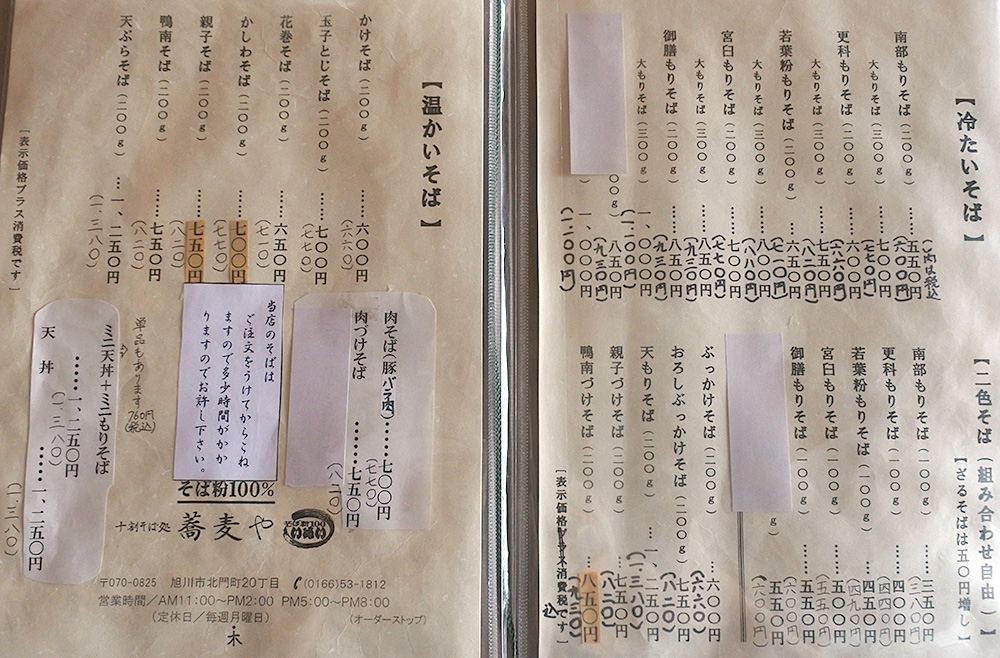 【冷たいそば】
(〃内は税込)
南部もりそば(二〇〇g)……五五〇円
(六〇〇円)
大もりそば(三〇〇g)……七〇〇円
(七七〇円)
更科もりそば(二〇〇g)……六〇〇円
(六六〇円)
大もりそば(三〇〇g)……七五〇円
(八二〇円)
若葉粉もりそば(二〇〇g)……六五〇円
(七一〇円)
大もりそば(三〇〇g)……八〇〇円
(八八〇円)
宮臼もりそば(二〇〇g)……七〇〇円
(七七〇円)
大もりそば(三〇〇g)……八五〇円
(九三〇円)
御膳もりそば(二〇〇g)……八五〇円
(九三〇円)
大もりそば(三〇〇g)……一、〇〇〇円
(一、一〇〇円)
〇〇g)……一、〇〇〇円
(一、一〇〇円)
【二色そば(組み合わせ自由)】
【ざるそばは五〇円増し】
南部もりそば(一〇〇g)……三五〇円
(三八〇円)
更科もりそば(一〇〇g)……四〇〇円
(四四〇円)
若葉粉もりそば(一〇〇g)……四五〇円
(四九〇円)
宮臼もりそば(一〇〇g)……五五〇円
(六〇〇円)
御膳もりそば(一〇〇g)……五五〇円
(六〇〇円)
g)……五五〇円
(六〇〇円)
ぶっかけそば(二〇〇g)……六〇〇円
(六六〇)
おろしぶっかけそば(二〇〇g)……七五〇円
(八二〇)
天もりそば(二〇〇g)…一、二五〇円
(一、三八〇)
親子づけそば(二〇〇g)……七五〇円
(八二〇)
鴨南づけそば(二〇〇g)……八五〇円
(九三〇)
[表示価格プラス消費税です]
込
【温かいそば】
かけそば(二〇〇g)……六〇〇円
(六六〇)
玉子とじそば(二〇〇g)……七〇〇円
(七七〇)
花巻そば(二〇〇g)……六五〇円
(七一〇)
かしわそば(二〇〇g)……七〇〇円
(七七〇)
親子そば(二〇〇g)……七五〇円
(八二〇)
鴨南そば(二〇〇g)……七五〇円
(八二〇)
天ぷらそば(二〇〇g)…一、二五〇円
(一、三八〇)
[表示価格プラス消費税です]
肉そば(豚バラ肉)……七〇〇円
(七七〇)
肉づけそば……七五〇円
(八二〇)
当店のそばは
ご注文をうけてからこね
ますので多少時間がかか
りますのでお許し下さい。
単品もあります
760円
(税込)
ミニ天丼+ミニもりそば
……一、二五〇円
(一、三八〇)
天丼……一、二五〇円
(一、三八〇)
そば粉100%
十割そば処 蕎麦や
そば粉100%
〒070-0825 旭川市北門町20丁目 (0166)53-1812
営業時間/AM11:00〜PM2:00 PM5:00〜PM8:00
(定休日/毎週月曜日) (オーダーストップ)
木